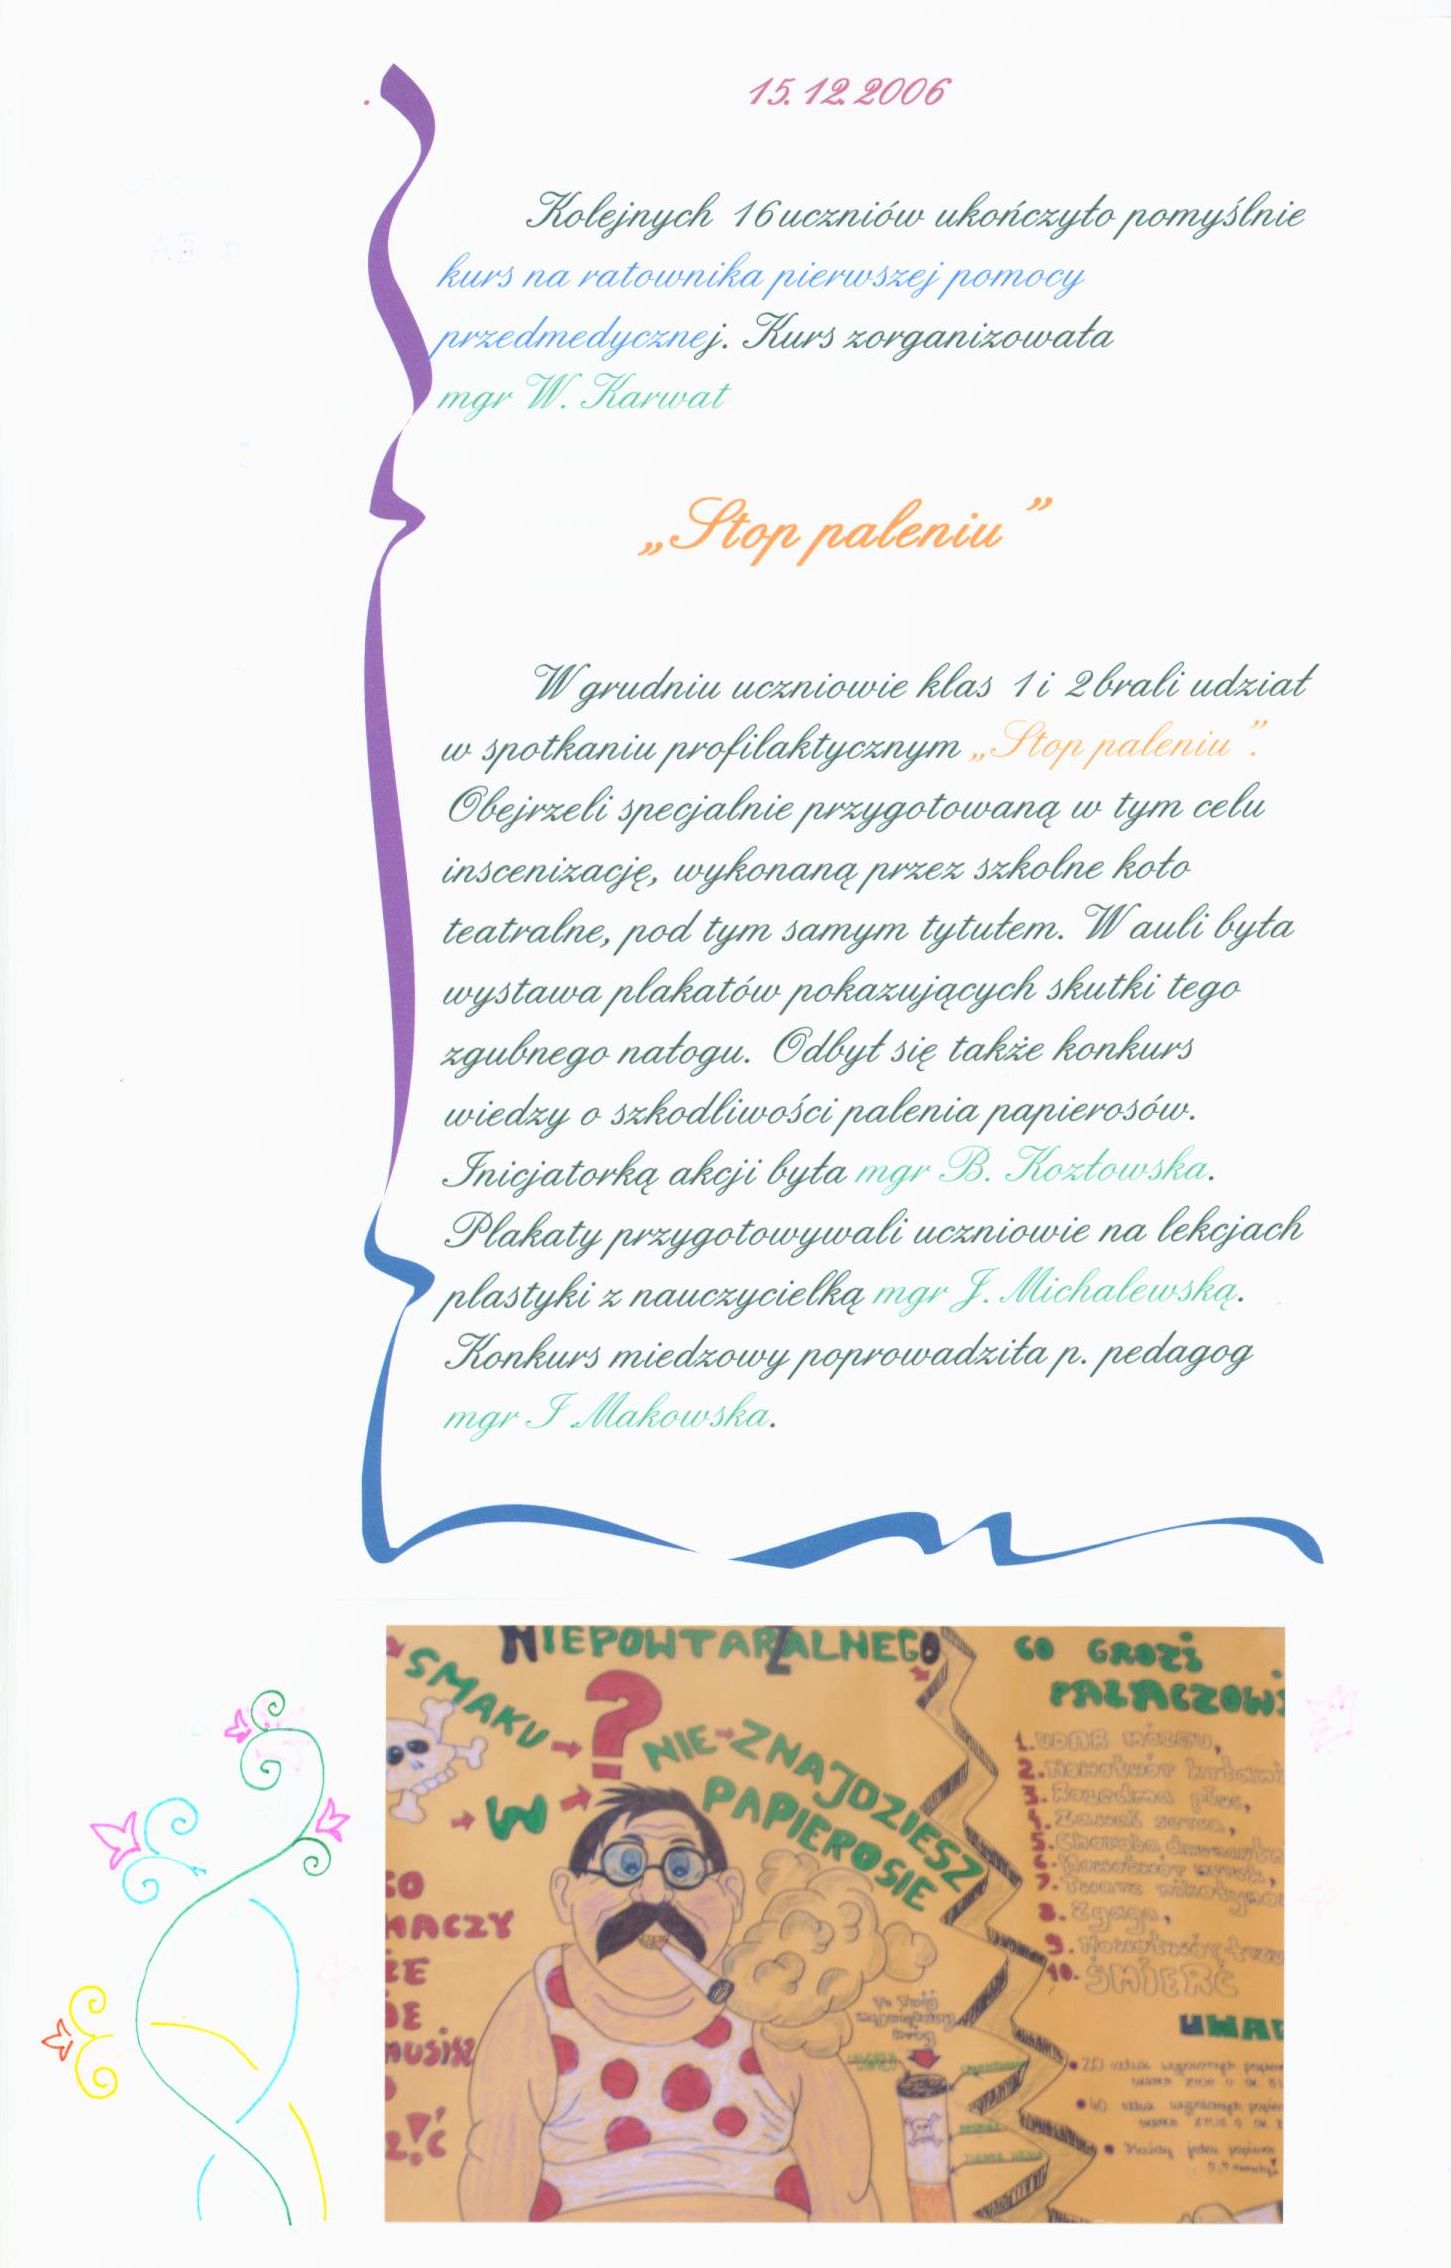 15.12.2006
Kolejnych 16 uczniów ukończyło pomyślnie
kurs na ratownika pierwszej pomocy
przedmedycznej. Kurs zorganizowała
mgr W. Karwat
„Stop paleniu”
W grudniu uczniowie klas 1 i 2 brali udział
w spotkaniu profilaktycznym „Stop paleniu”.
Obejrzeli specjalnie przygotowaną w tym celu
inscenizację, wykonaną przez szkolne koło
teatralne, pod tym samym tytułem. W auli była
wystawa plakatów pokazujących skutki tego
zgubnego nałogu. Odbył się także konkurs
wiedzy o szkodliwości palenia papierosów.
Inicjatorką akcji była mgr B. Kozłowska.
Plakaty przygotowywali uczniowie na lekcjach
plastyki z nauczycielką mgr J. Michalewską.
Konkurs miedzowy poprowadziła p. pedagog
mgr I Makowska.
NIEPOWTARZALNEGO
SMAKU
?
W
NIE ZNAJDZIESZ
PAPIEROSIE
CO GROZI
PALACZOWI
1. UDAR MÓZGU,
2. Nowotwór krtani
3. Rozedma płuc,
4. Zawał serca,
5. Choroba
6. Nowotwór
7. Twarz
8. Zgaga,
9. Nowotwór
10. ŚMIERĆ
To Twój
największy
wróg
UWAG
20 sztuk
40 sztuk